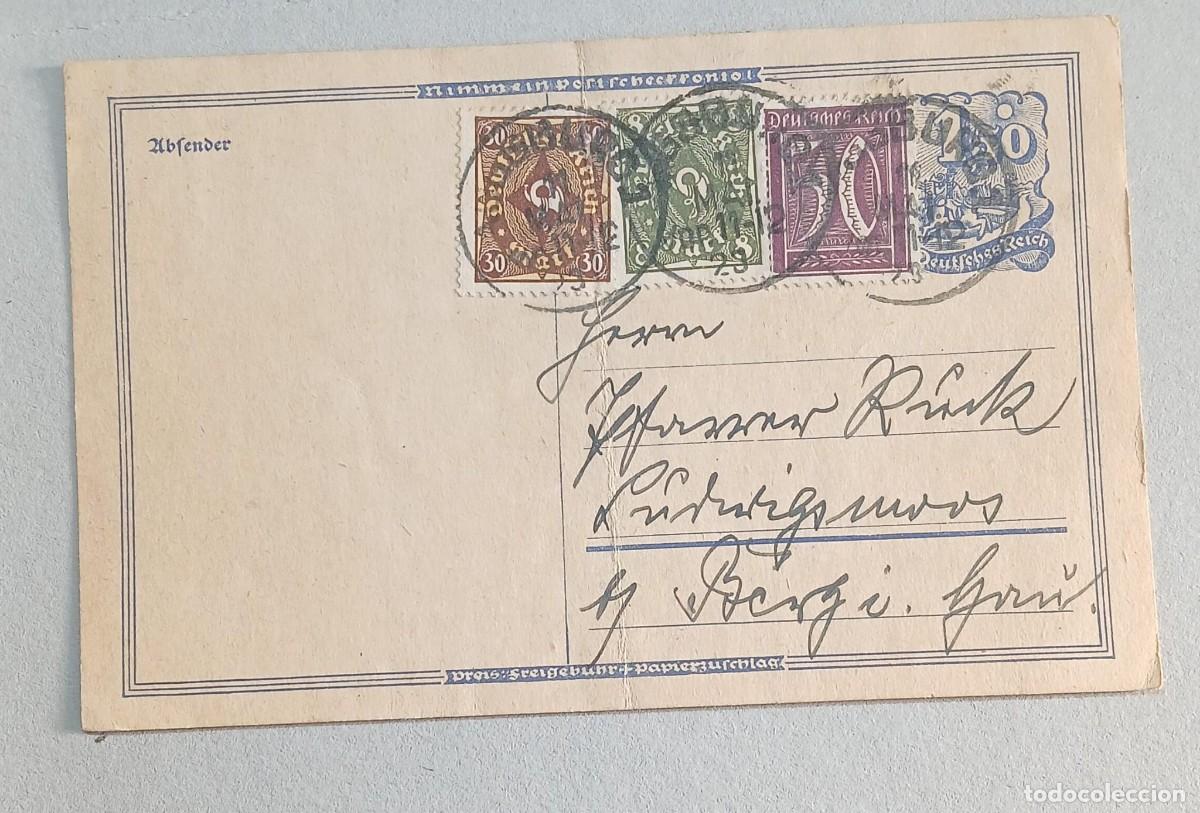 Nimm ein Postscheckkonto!
Absender
30 30
Deutsches Reich
2
Mark
30 30
8 8
2
Mark
8 8
Deutsches Reich
50
150
Deutsches Reich
Vorm 11-12
23
Herrn
Pfarrer Ruck
Ludwigsmoos
b/ Berg i. Gau.
Preis: Freigebühr + Papierzuschlag
todocoleccion